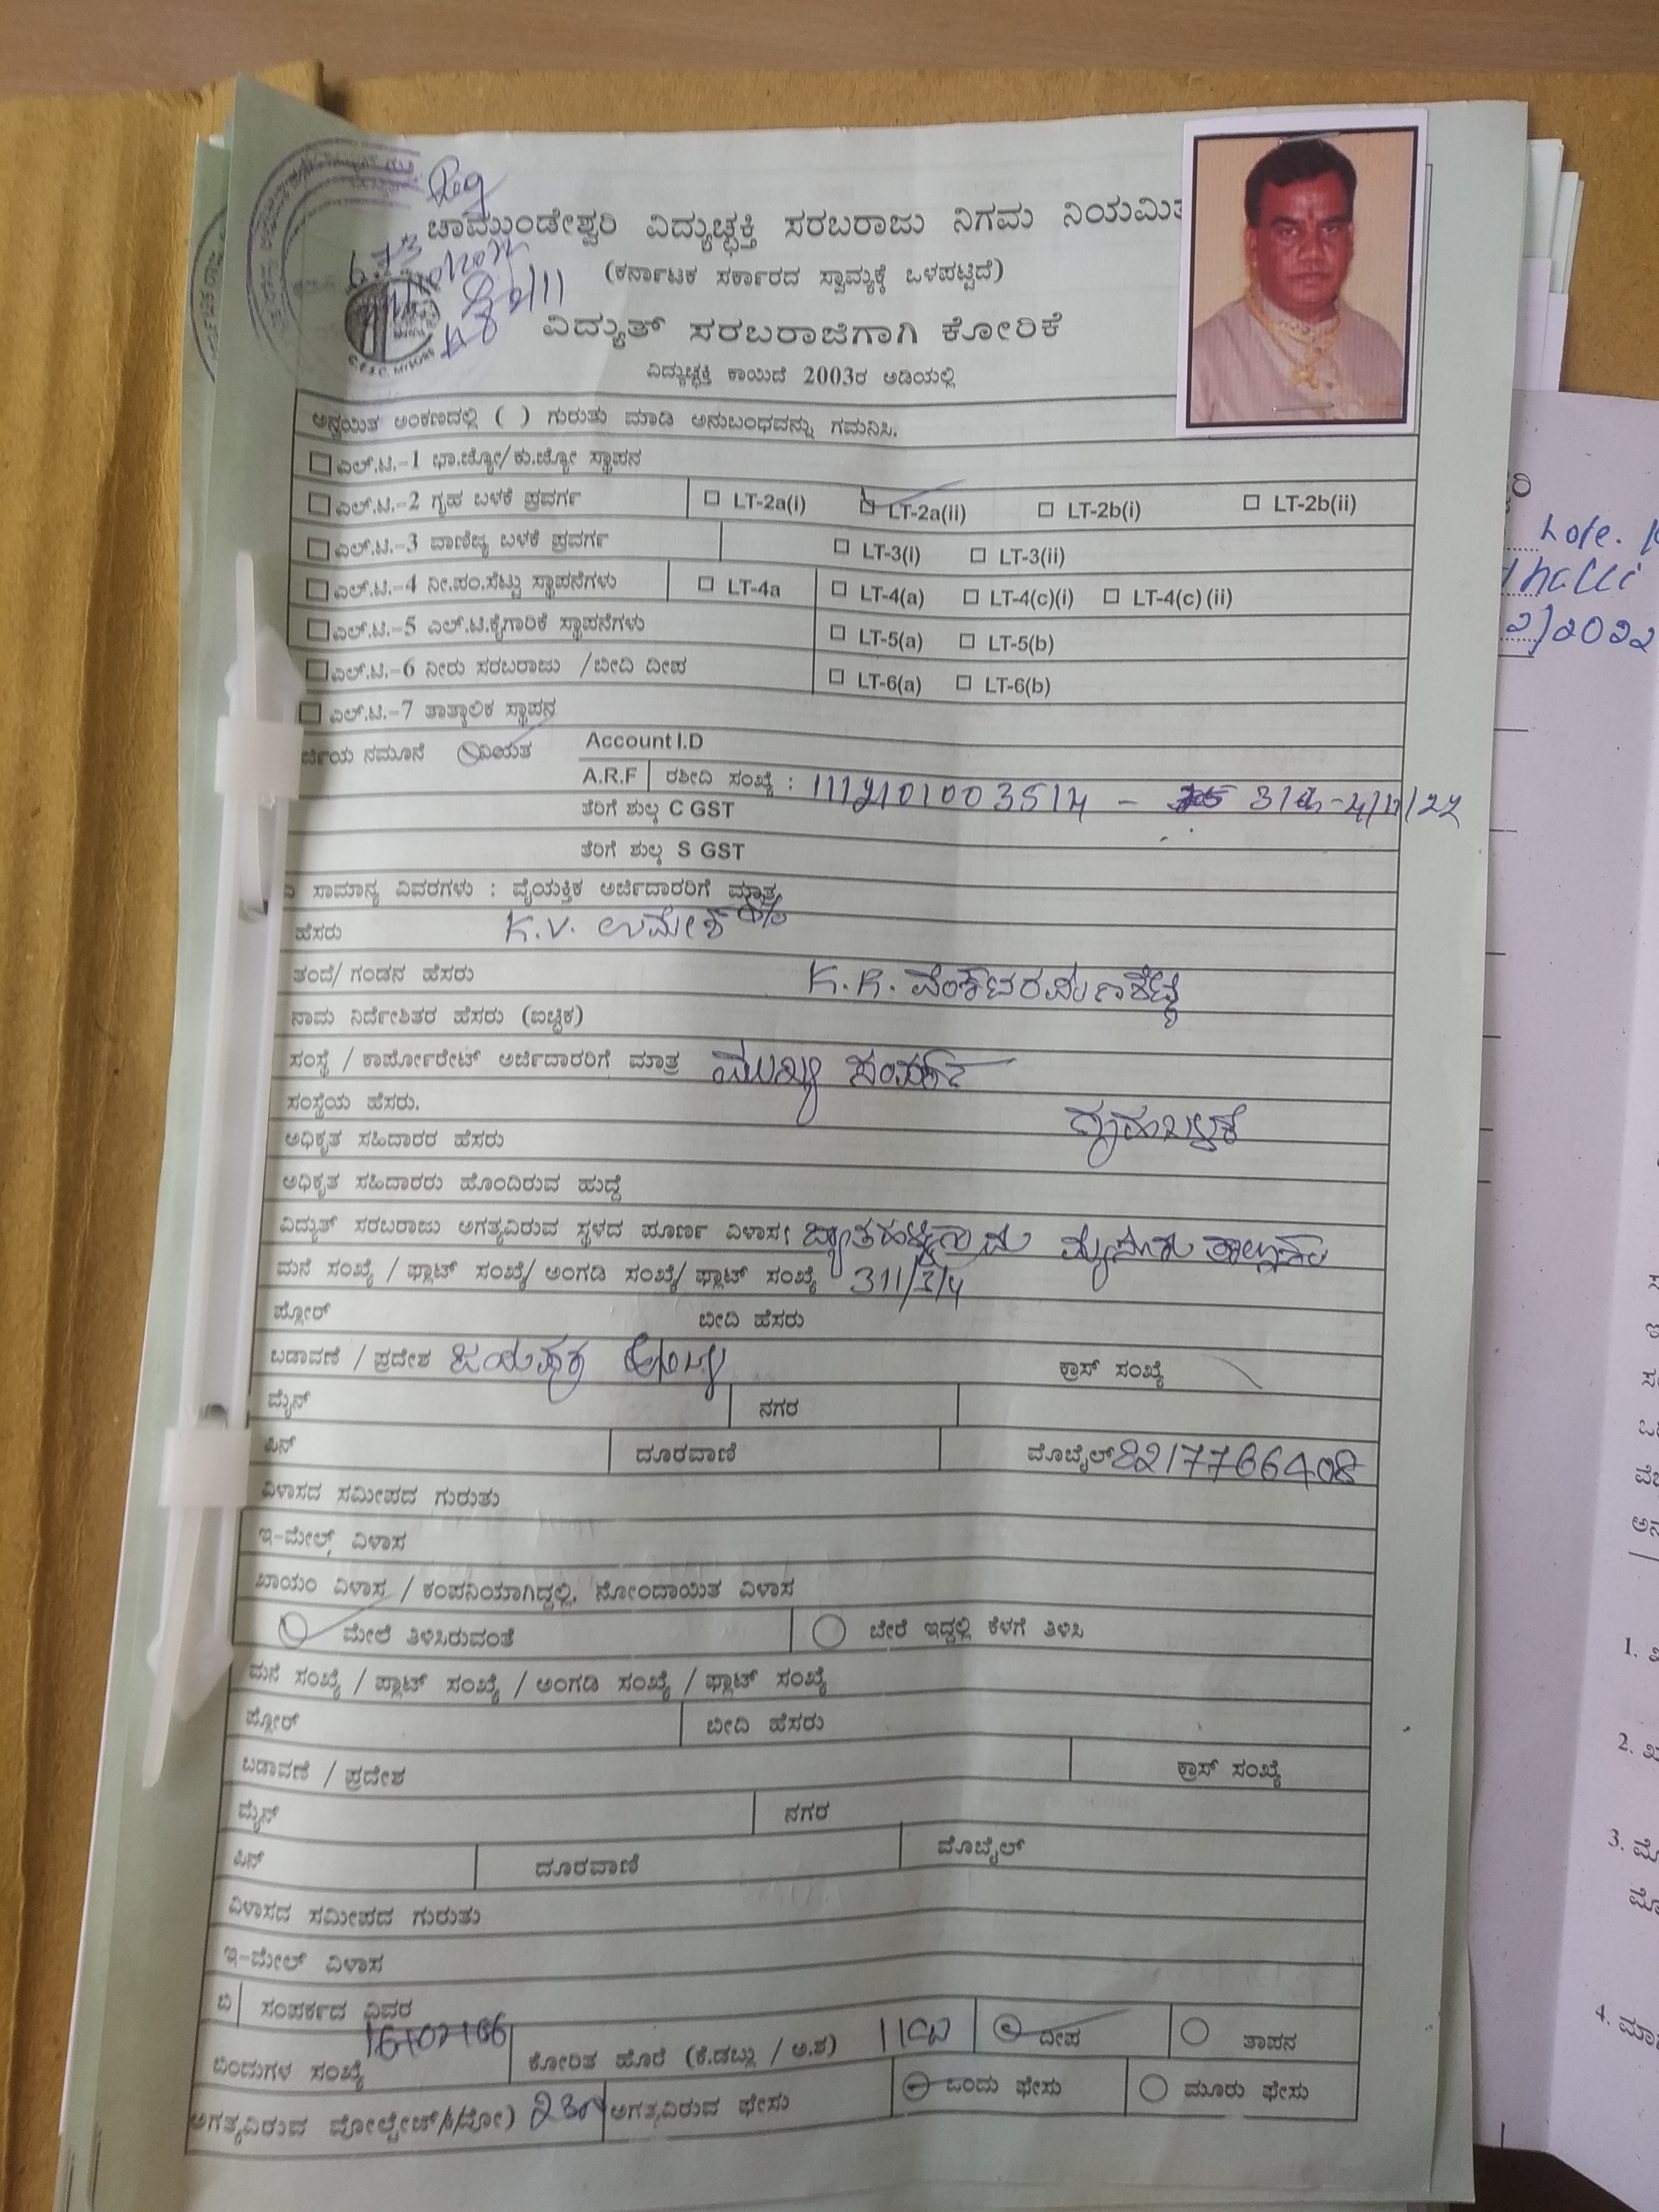 Reg
ಚಾಮುಂಡೇಶ್ವರಿ ವಿದ್ಯುಚ್ಛಕ್ತಿ ಸರಬರಾಜು ನಿಗಮ ನಿಯಮಿತ
(ಕರ್ನಾಟಕ ಸರ್ಕಾರದ ಸ್ವಾಮ್ಯಕ್ಕೆ ಒಳಪಟ್ಟಿದೆ)
ವಿದ್ಯುತ್ ಸರಬರಾಜಿಗಾಗಿ ಕೋರಿಕೆ
C.E.S.C. MYSORE
ವಿದ್ಯುಚ್ಛಕ್ತಿ ಕಾಯಿದೆ 2003ರ ಅಡಿಯಲ್ಲಿ
ಅನ್ವಯಿತ ಅಂಕಣದಲ್ಲಿ ( ) ಗುರುತು ಮಾಡಿ ಅನುಬಂಧವನ್ನು ಗಮನಿಸಿ.
ಎಲ್.ಟಿ.-1 ಭಾ.ಜ್ಯೋ/ಕು.ಜ್ಯೋ ಸ್ಥಾಪನ
ಎಲ್.ಟಿ.-2 ಗೃಹ ಬಳಕೆ ಪ್ರವರ್ಗ LT-2a(i) LT-2a(ii) LT-2b(i) LT-2b(ii)
ಎಲ್.ಟಿ.-3 ವಾಣಿಜ್ಯ ಬಳಕೆ ಪ್ರವರ್ಗ LT-3(i) LT-3(ii)
ಎಲ್.ಟಿ.-4 ನೀ.ಪಂ.ಸೆಟ್ಟು ಸ್ಥಾಪನೆಗಳು LT-4a LT-4(a) LT-4(c)(i) LT-4(c) (ii)
ಎಲ್.ಟಿ.-5 ಎಲ್.ಟಿ.ಕೈಗಾರಿಕೆ ಸ್ಥಾಪನೆಗಳು LT-5(a) LT-5(b)
ಎಲ್.ಟಿ.-6 ನೀರು ಸರಬರಾಜು /ಬೀದಿ ದೀಪ LT-6(a) LT-6(b)
ಎಲ್.ಟಿ.-7 ತಾತ್ಕಾಲಿಕ ಸ್ಥಾಪನ
ರ್ಜಿಯ ನಮೂನೆ ನಿಯತ Account I.D
A.R.F ರಶೀದಿ ಸಂಖ್ಯೆ :
ತೆರಿಗೆ ಶುಲ್ಕ C GST
ತೆರಿಗೆ ಶುಲ್ಕ S GST
ಸಾಮಾನ್ಯ ವಿವರಗಳು : ವೈಯಕ್ತಿಕ ಅರ್ಜಿದಾರರಿಗೆ ಮಾತ್ರ
ಹೆಸರು K.V. ಉಮೇಶ್
ತಂದೆ/ ಗಂಡನ ಹೆಸರು K.R. ವೆಂಕಟರಮಣಶೆಟ್ಟಿ
ನಾಮ ನಿರ್ದೇಶಿತರ ಹೆಸರು (ಐಚ್ಛಿಕ)
ಸಂಸ್ಥೆ / ಕಾರ್ಪೋರೇಟ್ ಅರ್ಜಿದಾರರಿಗೆ ಮಾತ್ರ ಮುಖ್ಯ ಸಂಪರ್ಕ
ಸಂಸ್ಥೆಯ ಹೆಸರು.
ಗೃಹಬಳಕೆ
ಅಧಿಕೃತ ಸಹಿದಾರರ ಹೆಸರು
ಅಧಿಕೃತ ಸಹಿದಾರರು ಹೊಂದಿರುವ ಹುದ್ದೆ
ವಿದ್ಯುತ್ ಸರಬರಾಜು ಅಗತ್ಯವಿರುವ ಸ್ಥಳದ ಪೂರ್ಣ ವಿಳಾಸ: ಮೈಸೂರು ತಾಲ್ಲೂಕು
ಮನೆ ಸಂಖ್ಯೆ / ಫ್ಲಾಟ್ ಸಂಖ್ಯೆ/ ಅಂಗಡಿ ಸಂಖ್ಯೆ/ ಫ್ಲಾಟ್ ಸಂಖ್ಯೆ 311/3/4
ಫ್ಲೋರ್ ಬೀದಿ ಹೆಸರು
ಬಡಾವಣೆ / ಪ್ರದೇಶ ಜಯಪುರ ಹೋಬಳಿ ಕ್ರಾಸ್ ಸಂಖ್ಯೆ
ಮೈನ್ ನಗರ
ಪಿನ್ ದೂರವಾಣಿ ಮೊಬೈಲ್ 8217766408
ವಿಳಾಸದ ಸಮೀಪದ ಗುರುತು
ಇ-ಮೇಲ್ ವಿಳಾಸ
ಖಾಯಂ ವಿಳಾಸ / ಕಂಪನಿಯಾಗಿದ್ದಲ್ಲಿ, ನೋಂದಾಯಿತ ವಿಳಾಸ
ಮೇಲೆ ತಿಳಿಸಿರುವಂತೆ ಬೇರೆ ಇದ್ದಲ್ಲಿ ಕೆಳಗೆ ತಿಳಿಸಿ
ಮನೆ ಸಂಖ್ಯೆ / ಪ್ಲಾಟ್ ಸಂಖ್ಯೆ / ಅಂಗಡಿ ಸಂಖ್ಯೆ / ಫ್ಲಾಟ್ ಸಂಖ್ಯೆ
ಫ್ಲೋರ್ ಬೀದಿ ಹೆಸರು
ಬಡಾವಣೆ / ಪ್ರದೇಶ ಕ್ರಾಸ್ ಸಂಖ್ಯೆ
ಮೈನ್ ನಗರ
ಪಿನ್ ದೂರವಾಣಿ ಮೊಬೈಲ್
ವಿಳಾಸದ ಸಮೀಪದ ಗುರುತು
ಇ-ಮೇಲ್ ವಿಳಾಸ
ಬಿ ಸಂಪರ್ಕದ ವಿವರ
ಬಿಂದುಗಳ ಸಂಖ್ಯೆ ಕೋರಿತ ಹೊರೆ (ಕೆ.ಡಬ್ಲು / ಅ.ಶ) ದೀಪ ತಾಪನ
ಅಗತ್ಯವಿರುವ ವೋಲ್ಟೇಜ್ 230V ಅಗತ್ಯವಿರುವ ಫೇಸು ಒಂದು ಫೇಸು ಮೂರು ಫೇಸು